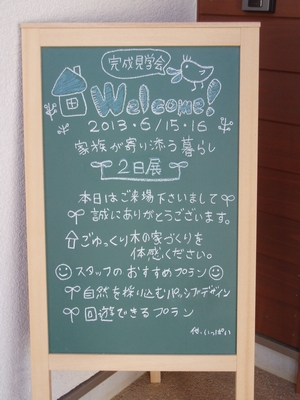 完成見学会
Welcome!
2013.6/15.16
家族が寄り添う暮らし
2日展
本日はご来場下さいまして
誠にありがとうございます。
ごゆっくり木の家づくりを
体感ください。
スタッフのおすすめプラン
自然を採り込むパッシブデザイン
回遊できるプラン
他、いっぱい